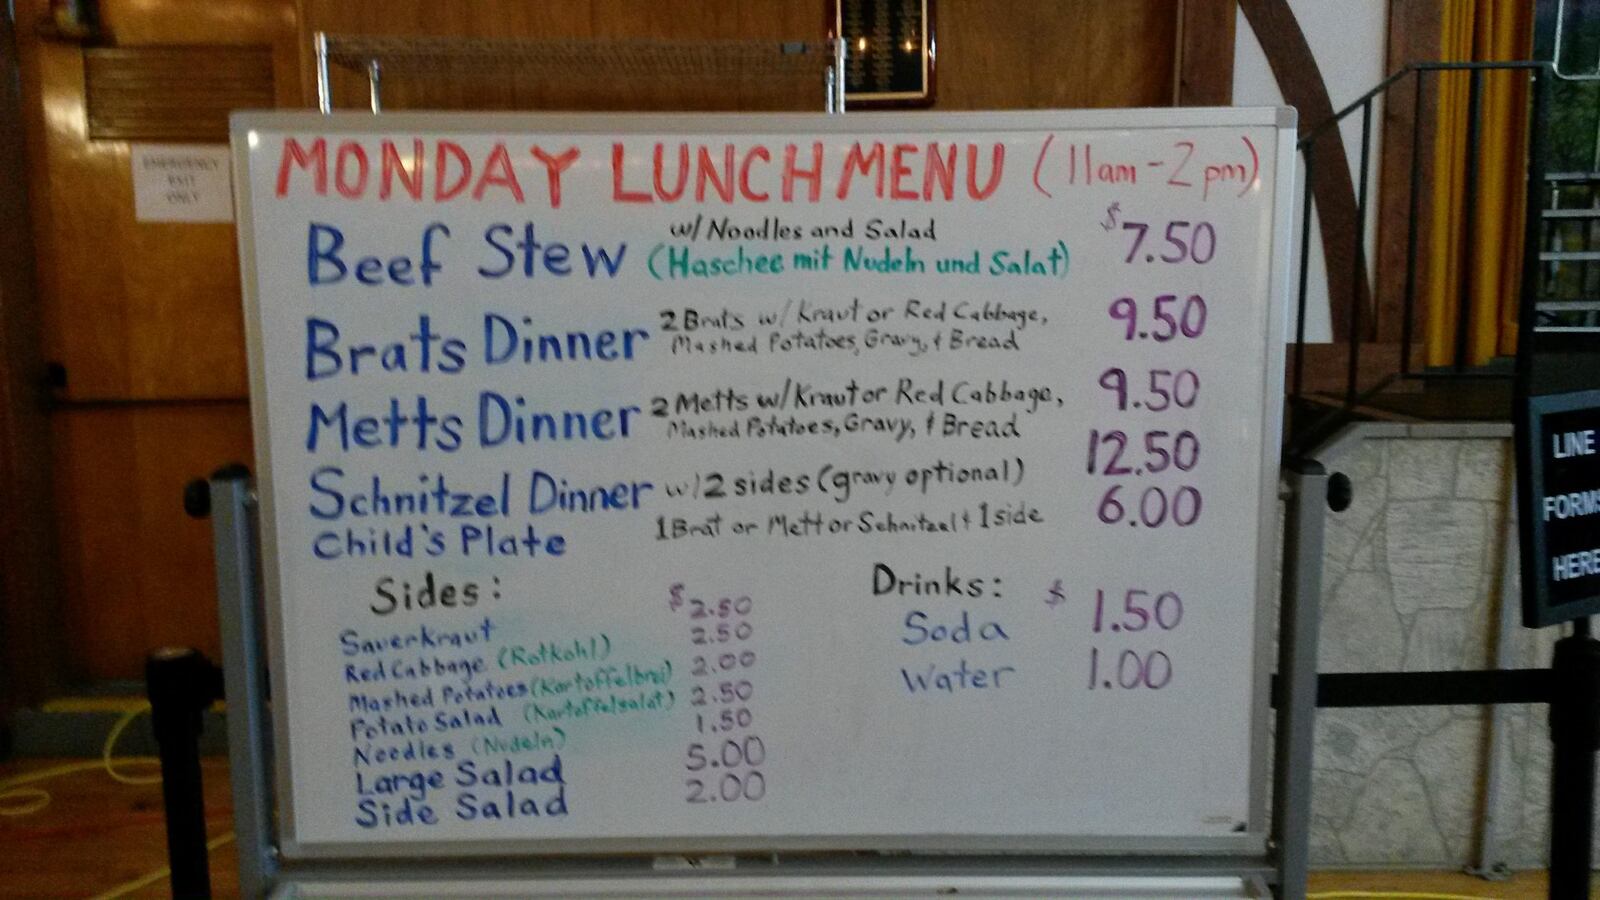 MONDAY LUNCH MENU (11am-2pm)
Beef Stew w/ Noodles and Salad $7.50
(Haschee mit Nudeln und Salat)
Brats Dinner 2 Brats w/ Kraut or Red Cabbage, 9.50
Mashed Potatoes, Gravy, & Bread
Metts Dinner 2 Metts w/ Kraut or Red Cabbage, 9.50
Mashed Potatoes, Gravy, & Bread
Schnitzel Dinner w/ 2 sides (gravy optional) 12.50
Child's Plate 1 Brat or Mett or Schnitzel & 1 side 6.00
Sides:
Sauerkraut $2.50
Red Cabbage (Rotkohl) 2.50
Mashed Potatoes (Kartoffelbrei) 2.00
Potato Salad (Kartoffelsalat) 2.50
Noodles (Nudeln) 1.50
Large Salad 5.00
Side Salad 2.00
Drinks:
Soda $1.50
Water 1.00
EMERGENCY
EXIT
ONLY
LINE
FORMS
HERE